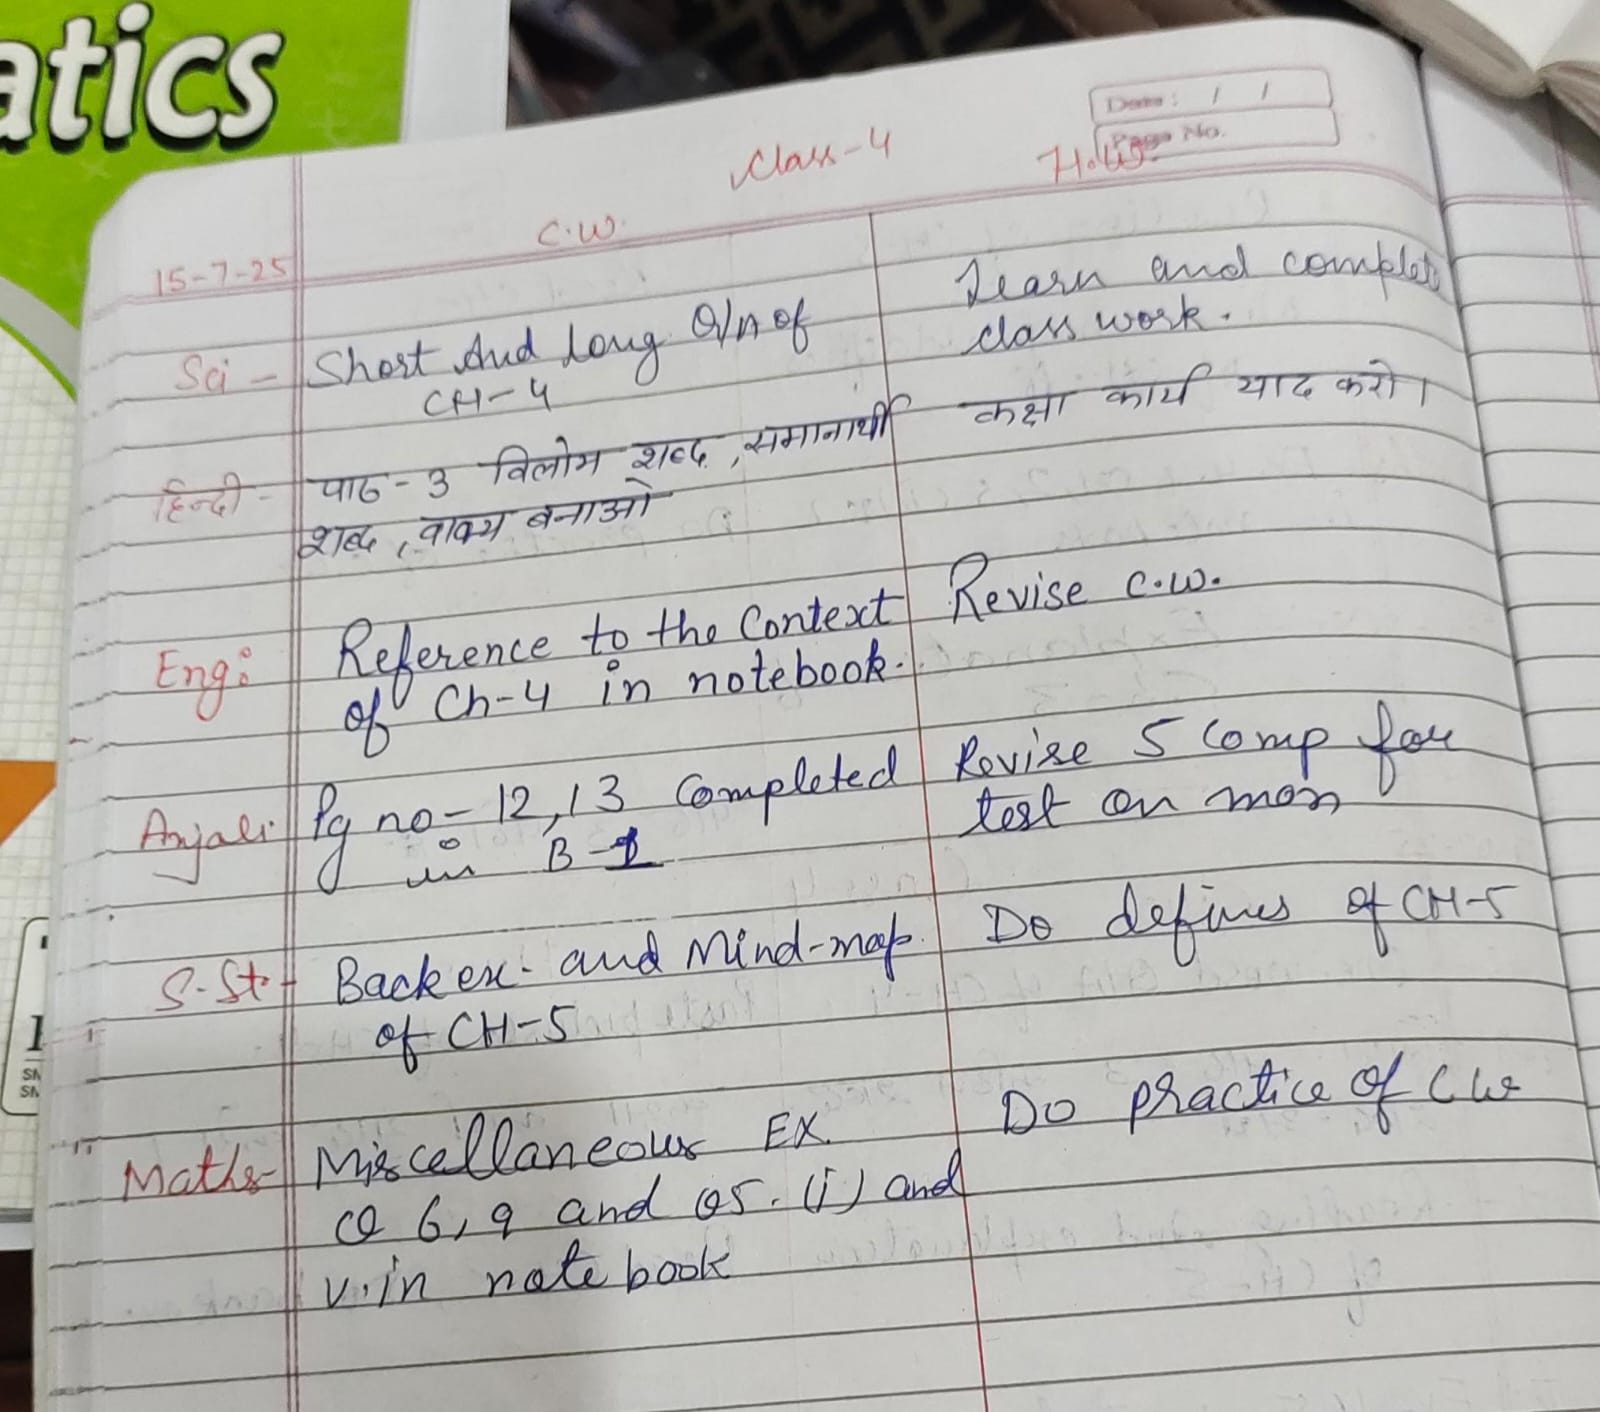 atics
Date: / /
Page No.
Class-4
H.W.
C.W.
15-7-25
Sci - Short And Long Q/A of
CH-4
Learn and complete
class work.
हिन्दी - पाठ-3 विलोम शब्द, समानार्थी
शब्द, वाक्य बनाओ
कक्षा कार्य याद करो।
Eng: Reference to the Context
of Ch-4 in notebook.
Revise C.W.
Anjali: Pg no-12,13 Completed
in B-1
Revise 5 Comp for
test on mon
S.St - Back ex. and Mind-map
of CH-5
Do defines of CH-5
Maths- Miscellaneous EX.
Q 6, 9 and Q5. (i) and
v. in note book
Do practice of CW